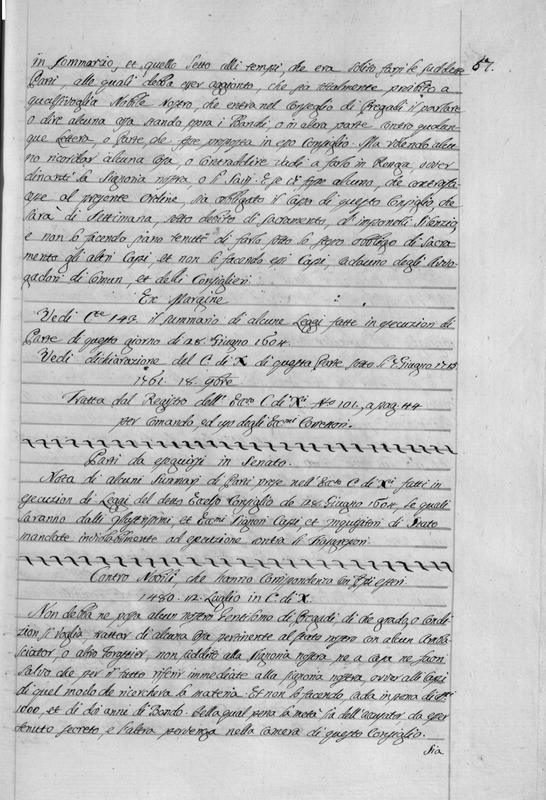 57.
in sommario, et quello letto alli tempi, che era solito farsi le suddette
Parti, alla quali debba esser aggionto, che sia totalmente proibito a
qualsivoglia Nobile Nostro, che entra nel Conseglio di Pregadi il portare
o dire alcuna cosa stando sopra i Banchi, o in altra parte contro qualun-
que Lettera, o Parte, che fosse proposta in esso Consiglio. Ma volendo alcu-
no ricordar alcuna cosa, o Contradire vadi a farlo in Renga, over
dinanti la Signoria nostra, o li Savj. E se vi fosse alcuno, che contrafa-
cesse al presente ordine, sia obbligato il Capo di questo Consiglio che
sarà di Settimana, sotto debito di sacramento, d'imponerli silenzio,
e non lo facendo siano tenuti di farlo sotto lo stesso obbligo di sacra-
mento gli altri Capi, et non lo facendo essi Capi, cadauno degli Avvo-
gadori di Comun, et delli Consiglieri
Ex Margine
Vedi Cte 143. il summario di alcune Leggi fatte in esecuzion di
Parte di questo giorno di 28. Giugno 1604.
Vedi dichiarazione del C. di X di questa Parte sotto li Giugno
1761. 18. 9bre
Tratta dal Registro dell' Eccso C. di X No 101, a pag. 44
per comando ed uso degli Eccmi Correttori.
Parti da eseguirsi in Senato.
Nota di alcuni Summarj di Parti prese nell' Eccso C. di X fatti in
esecuzion di Leggi del detto Eccelso Consiglio de 28. Giugno 1604, le quali
saranno dalli Illustrissimi et Eccmi Signori Capi, et Inquisitori di Stato
mandate inviolabilmente ad esecuzione contra li trasgressori.
Contro Nobili che hanno Corrispondenza con esteri
1480. 12. Luglio in C. di X.
Non debba ne possa alcun nostro Gentilomo di Pregadi, di che grado, o condi-
zion, si voglia, trattar di alcuna cosa pertinente al stato nostro con alcun Amba-
sciator, o altro Forestier, non suddito alla Signoria nostra, ne a casa ne fuori
salvo che per riferir immediate alla Signoria nostra, over alli Capi
di quel modo che ricercherà la materia. Et non lo facendo, cada in pena di
1000, et di doi anni di Bando. Della qual pena la metà sia dell' accusator da esser
tenuto secreto, e l'altra pervenga nella camera di questo Consiglio.
Sia